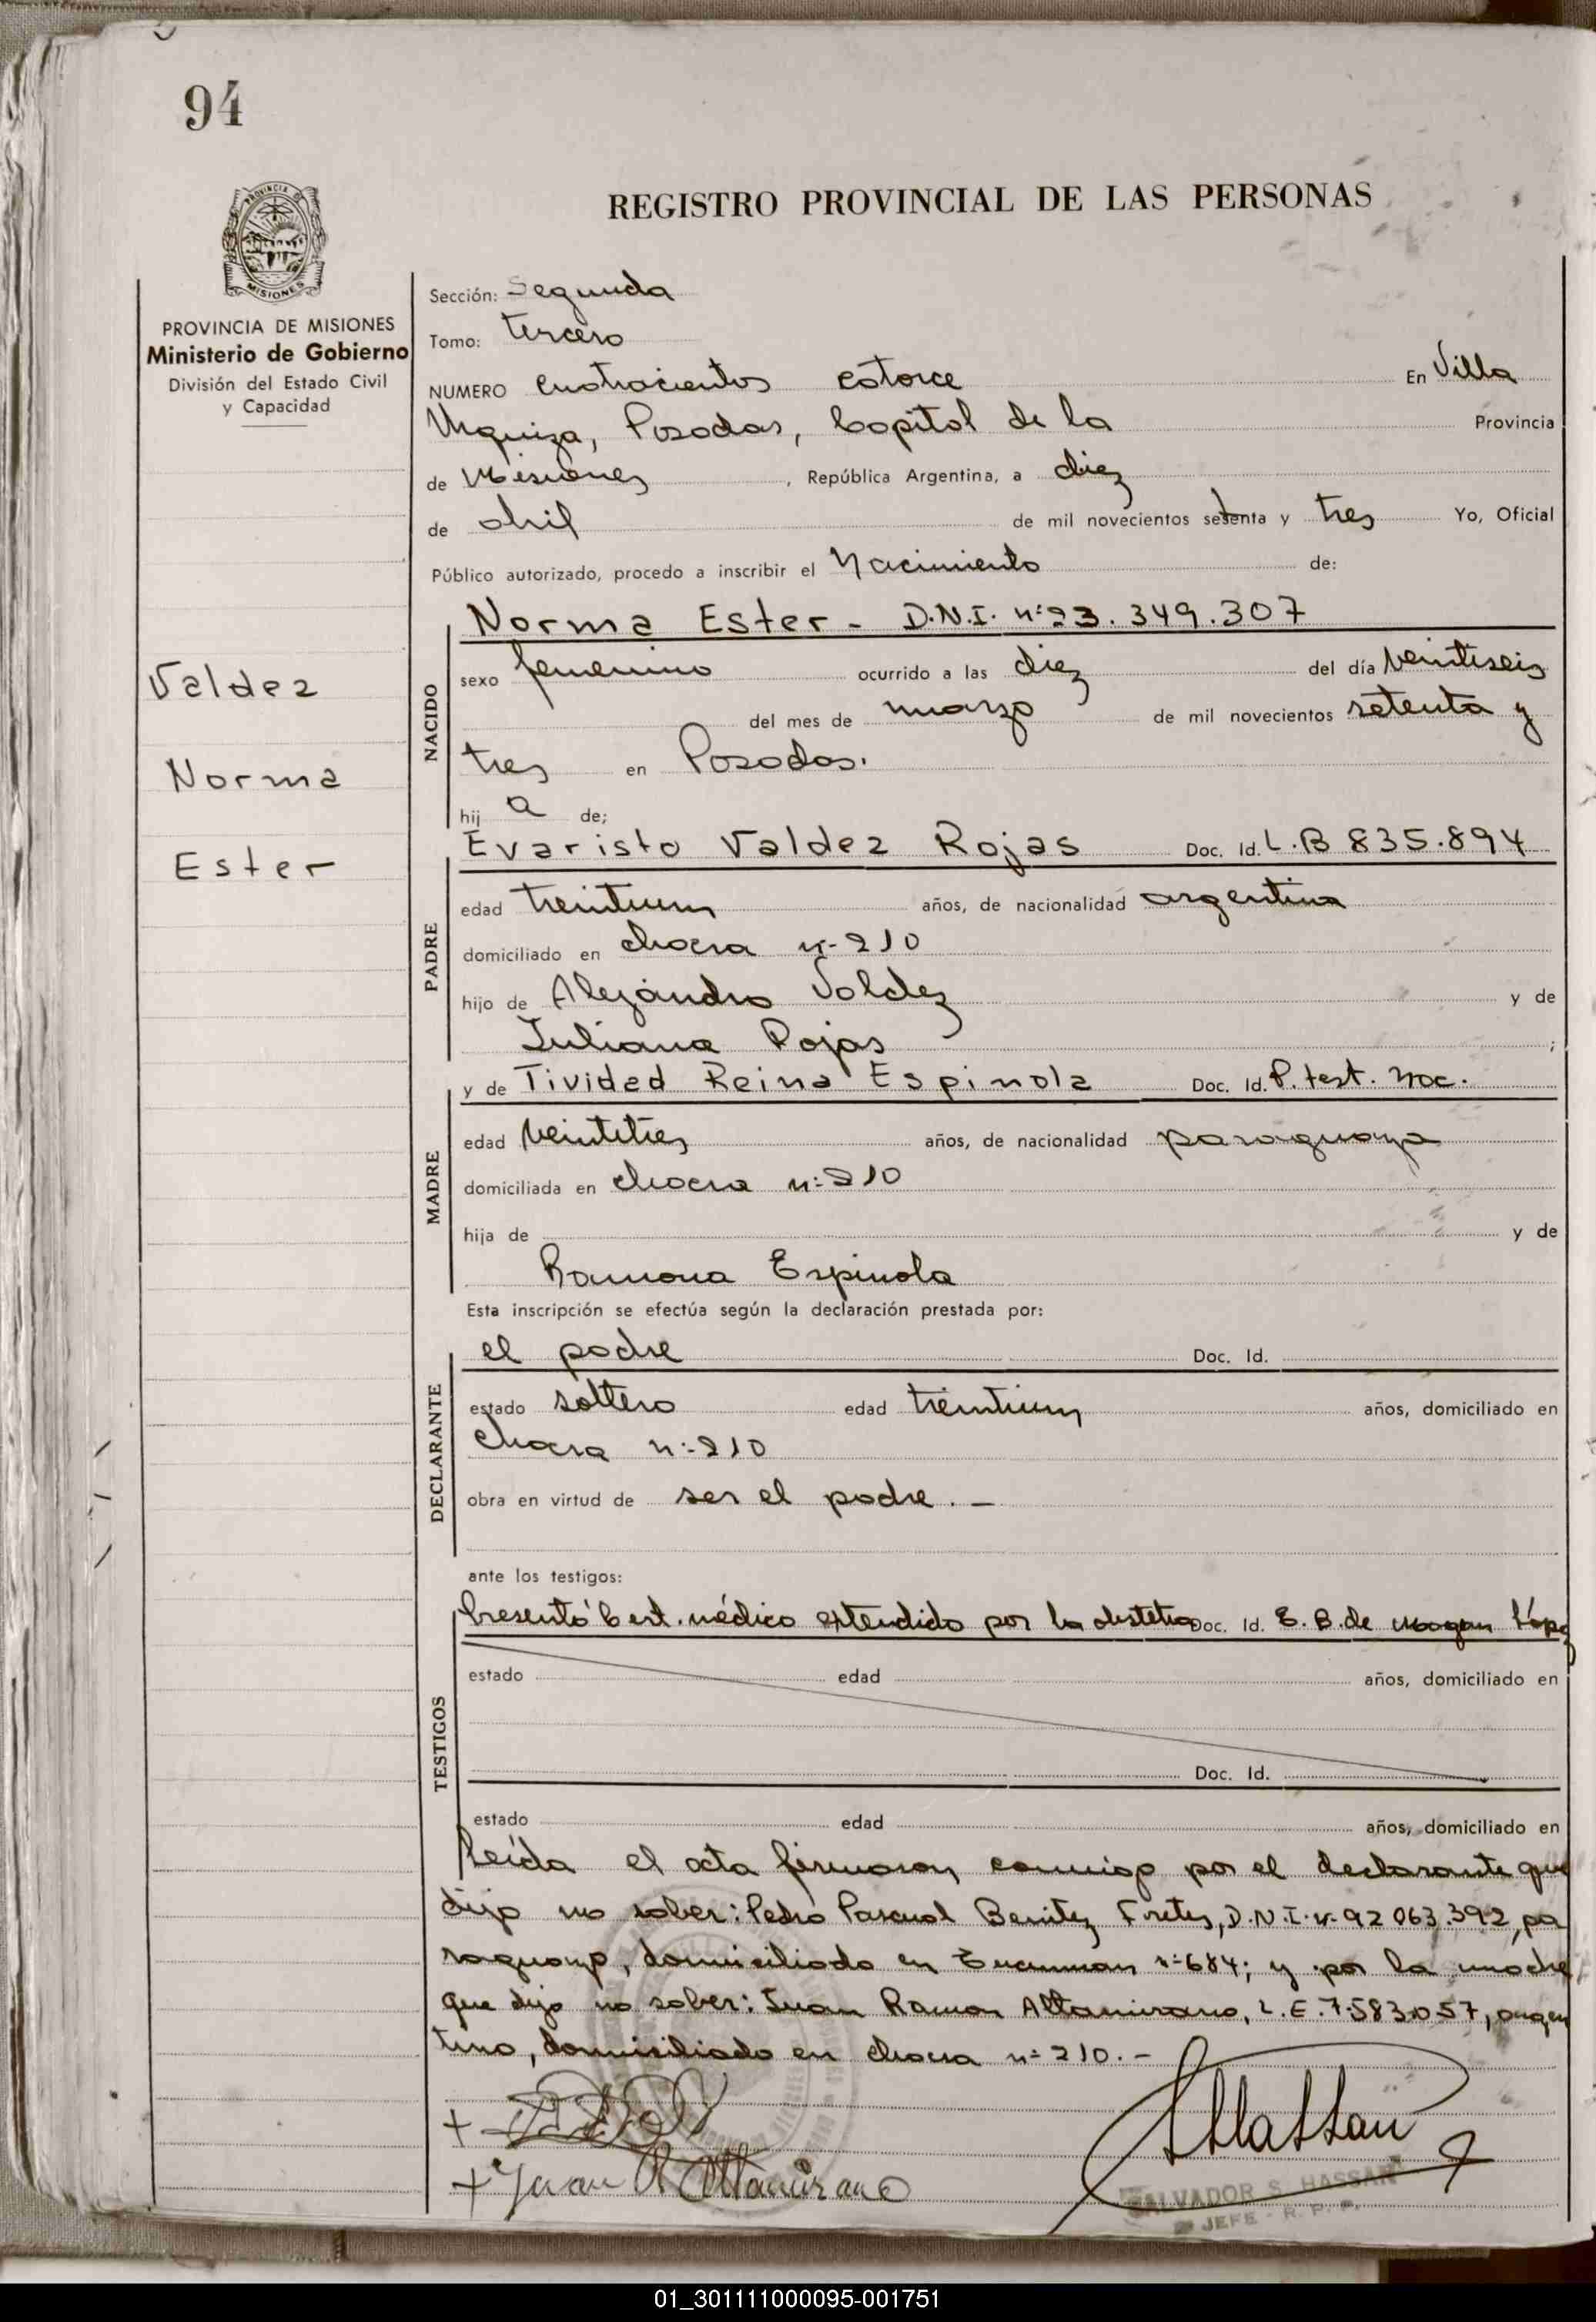 94
PROVINCIA DE
MISIONES
REGISTRO PROVINCIAL DE LAS PERSONAS
PROVINCIA DE MISIONES
Ministerio de Gobierno
División del Estado Civil
y Capacidad
Valdez
Norma
Ester
Sección: Segunda
Tomo: tercero
NUMERO cuatrocientos catorce En Villa
Urquiza, Posadas, Capital de la Provincia
de Misiones, República Argentina, a diez
de abril de mil novecientos setenta y tres Yo, Oficial
Público autorizado, procedo a inscribir el Nacimiento de:
NACIDO
Norma Ester - D.N.I. nº 23.349.307
sexo femenino ocurrido a las diez del día veintiseis
del mes de marzo de mil novecientos setenta y
tres en Posadas.
hij a de;
PADRE
Evaristo Valdez Rojas Doc. Id. L.B 835.894
edad treintiun años, de nacionalidad argentina
domiciliado en chacra nº 210
hijo de Alejandro Valdez y de
Juliana Rojas ;
MADRE
y de Tividad Reina Espinola Doc. Id. P. test. noc.
edad veintitres años, de nacionalidad paraguaya
domiciliada en chacra nº 210
hija de y de
Ramona Espinola
Esta inscripción se efectúa según la declaración prestada por:
DECLARANTE
el padre Doc. Id.
estado soltero edad treintiun años, domiciliado en
chacra nº 210
obra en virtud de ser el padre. -
ante los testigos:
TESTIGOS
Presentó Cert. médico extendido por la obstetra Doc. Id. E. B. de
estado edad años, domiciliado en
Doc. Id.
estado edad años, domiciliado en
Leída el acta firmaron conmigo por el declarante que
dijo no saber: Pedro Pascual Benitez Fretes, D.N.I. nº 92 063.392, pa
raguayo, domiciliado en Tucuman nº 684; y por la madre
que dijo no saber: Juan Ramon Altamirano, L.E. 7.583.057, argen
tino, domiciliado en chacra nº 210. -
+ Juan R Altamirano
SALVADOR S. HASSAN
JEFE - R. P. P.
01_301111000095-001751